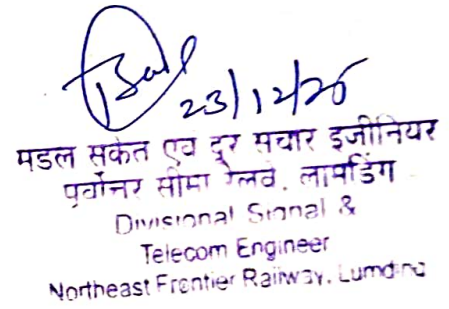 23/12/25
मडल सकेत एव दूर सचार इजीनियर
पूर्वोत्तर सीमा रेलवे, लामडिंग
Divisional Signal &
Telecom Engineer
Northeast Frontier Railway, Lumding